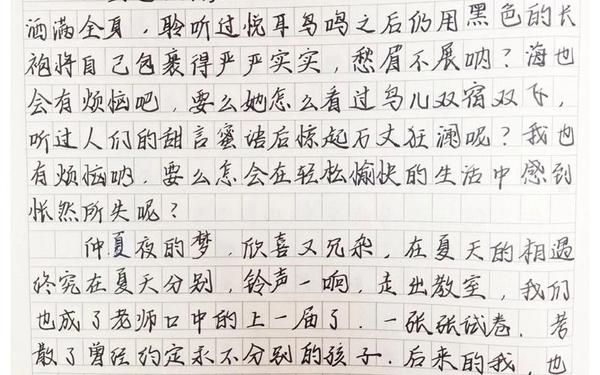 洒满全身，聆听过悦耳鸟鸣之后仍用黑色的长
袍将自己包裹得严严实实，愁眉不展呐？海也
会有烦恼吧，要么她怎么看过鸟儿双宿双飞，
听过人们的甜言蜜语后惊起万丈狂澜呢？我也
有烦恼呐，要么怎会在轻松愉快的生活中感到
怅然所失呢？
仲夏夜的梦，欣喜又冗杂，在夏天的相遇
终究在夏天分别，铃声一响，走出教室，我们
也成了老师口中的上一届了．一张张试卷．考
散了曾经约定永不分别的孩子．后来的我，也